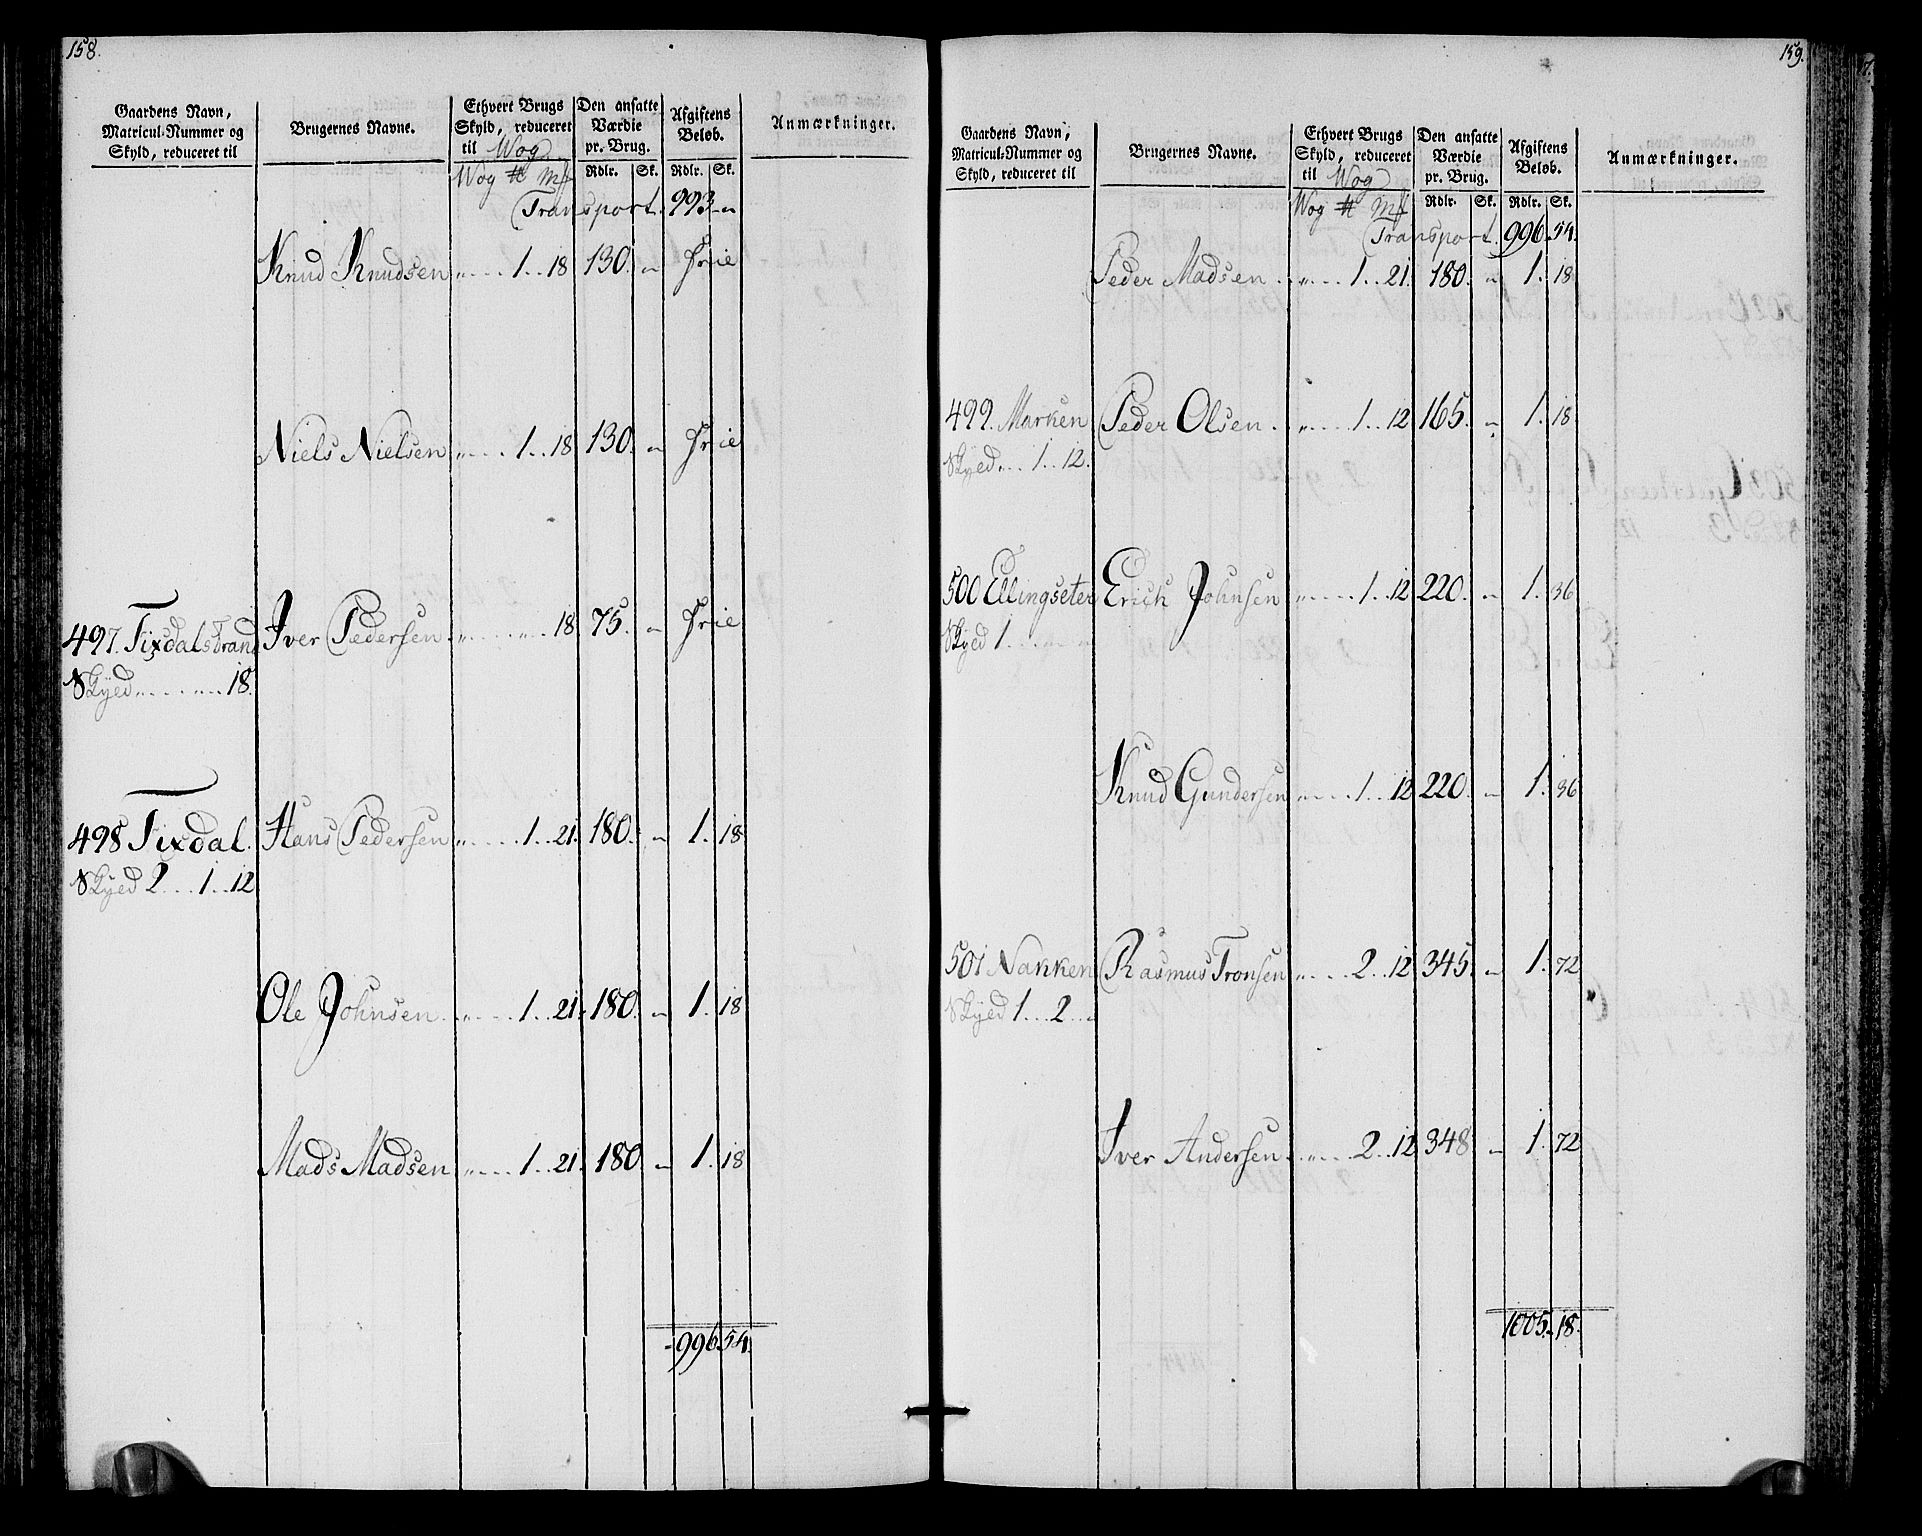 158.
Gaardens Navn, Matricul-Nummer og Skyld, reduceret til
Brugernes Navne.
Ethvert Brugs Skyld, reduceret til Wog
Den ansatte Værdie pr. Brug.
Afgiftens Beløb.
Anmærkninger.
Wog ℔ Mk Rdlr. Sk. Rdlr. Sk.
Transport. 993 „
Knud Knudsen „ 1 18 130. „ Frie
Niels Nielsen „ 1 18 130. „ Frie
497. Tixdalstrand Iver Pedersen „ „ 18 75. „ Frie
Skyed „ „ 18.
498 Tixdal. Hans Pedersen „ 1 21. 180. „ 1. 18
Skyed 2 1 12
Ole Johnsen „ 1 21. 180. „ 1. 18
Mads Madsen „ 1 21. 180 „ 1. 18
996 54.
159.
Gaardens Navn, Matricul-Nummer og Skyld, reduceret til
Brugernes Navne.
Ethvert Brugs Skyld, reduceret til Wog
Den ansatte Værdie pr. Brug.
Afgiftens Beløb.
Anmærkninger.
Wog ℔ Mk Rdlr. Sk. Rdlr. Sk.
Transport. 996 54.
Peder Madsen „ 1 21. 180. „ 1. 18
499. Marken Peder Olsen „ 1 12 165. „ 1. 18
Skyed „ 1 12.
500 Ellingseter Erich Johnsen „ 1 12 220. „ 1. 36
Skyed 1 „ „
Knud Gundersen „ 1 12 220. „ 1. 36
501 Nakken Rasmus Tronsen „ 2 12 345. „ 1. 72
Skyed 1 2 „
Iver Andersen „ 2 12 348 „ 1. 72
1005. 18.